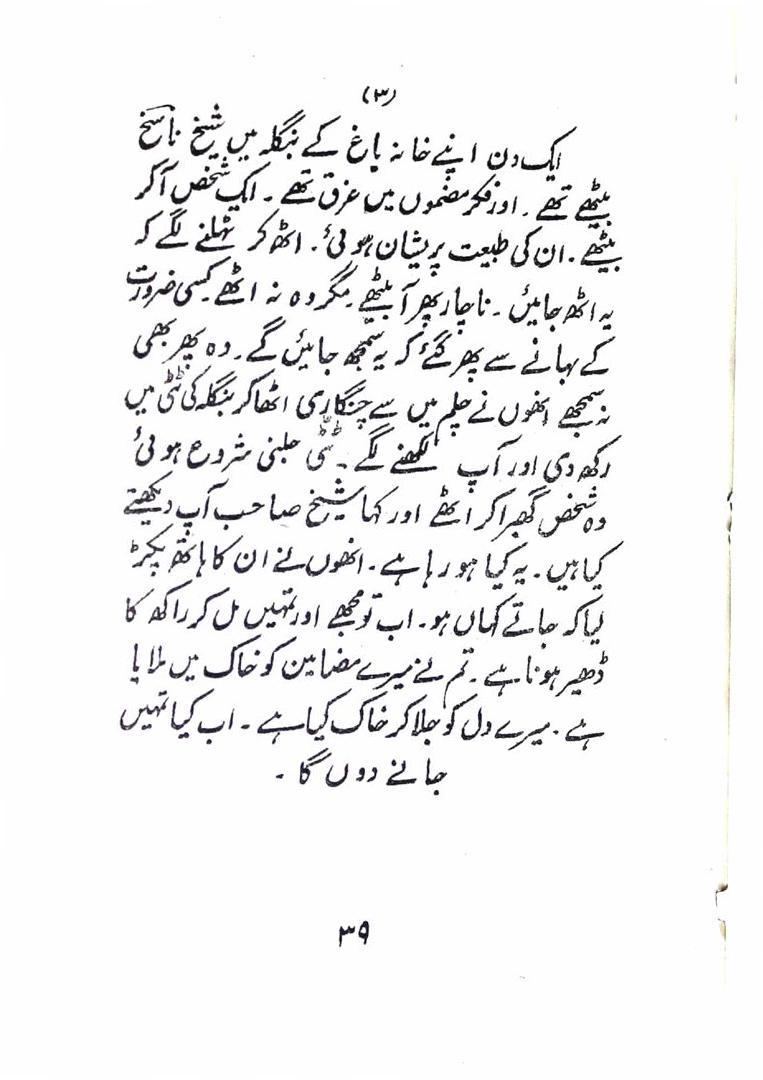 (۳)
ایک دن اپنے خانہ باغ کے بنگلہ میں شیخ ناسخ
بیٹھے تھے۔ اور فکر مضموں میں غرق تھے۔ ایک شخص آکر
بیٹھے۔ ان کی طبیعت پریشان ہوئی۔ اٹھ کر ٹہلنے لگے کہ
یہ اٹھ جائیں۔ ناچار پھر آ بیٹھے۔ مگر وہ نہ اٹھے۔ کسی ضرورت
کے بہانے سے پھر گئے کہ یہ سمجھ جائیں گے۔ وہ پھر بھی
نہ سمجھے انھوں نے چلم میں سے چنگاری اٹھا کر بنگلہ کی ٹٹی میں
رکھ دی اور آپ لکھنے لگے۔ ٹٹی جلنی شروع ہوئی
وہ شخص گھبرا کر اٹھے اور کہا شیخ صاحب آپ دیکھتے
کیا ہیں۔ یہ کیا ہو رہا ہے۔ انھوں نے ان کا ہاتھ پکڑ
لیا کہ جاتے کہاں ہو۔ اب تو مجھے اور تمہیں مل کر راکھ کا
ڈھیر ہونا ہے۔ تم نے میرے مضامین کو خاک میں ملایا
ہے۔ میرے دل کو جلا کر خاک کیا ہے۔ اب کیا تمہیں
جانے دوں گا۔
۳۹